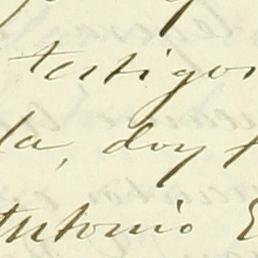 testigos
la, doy f
Antonio E